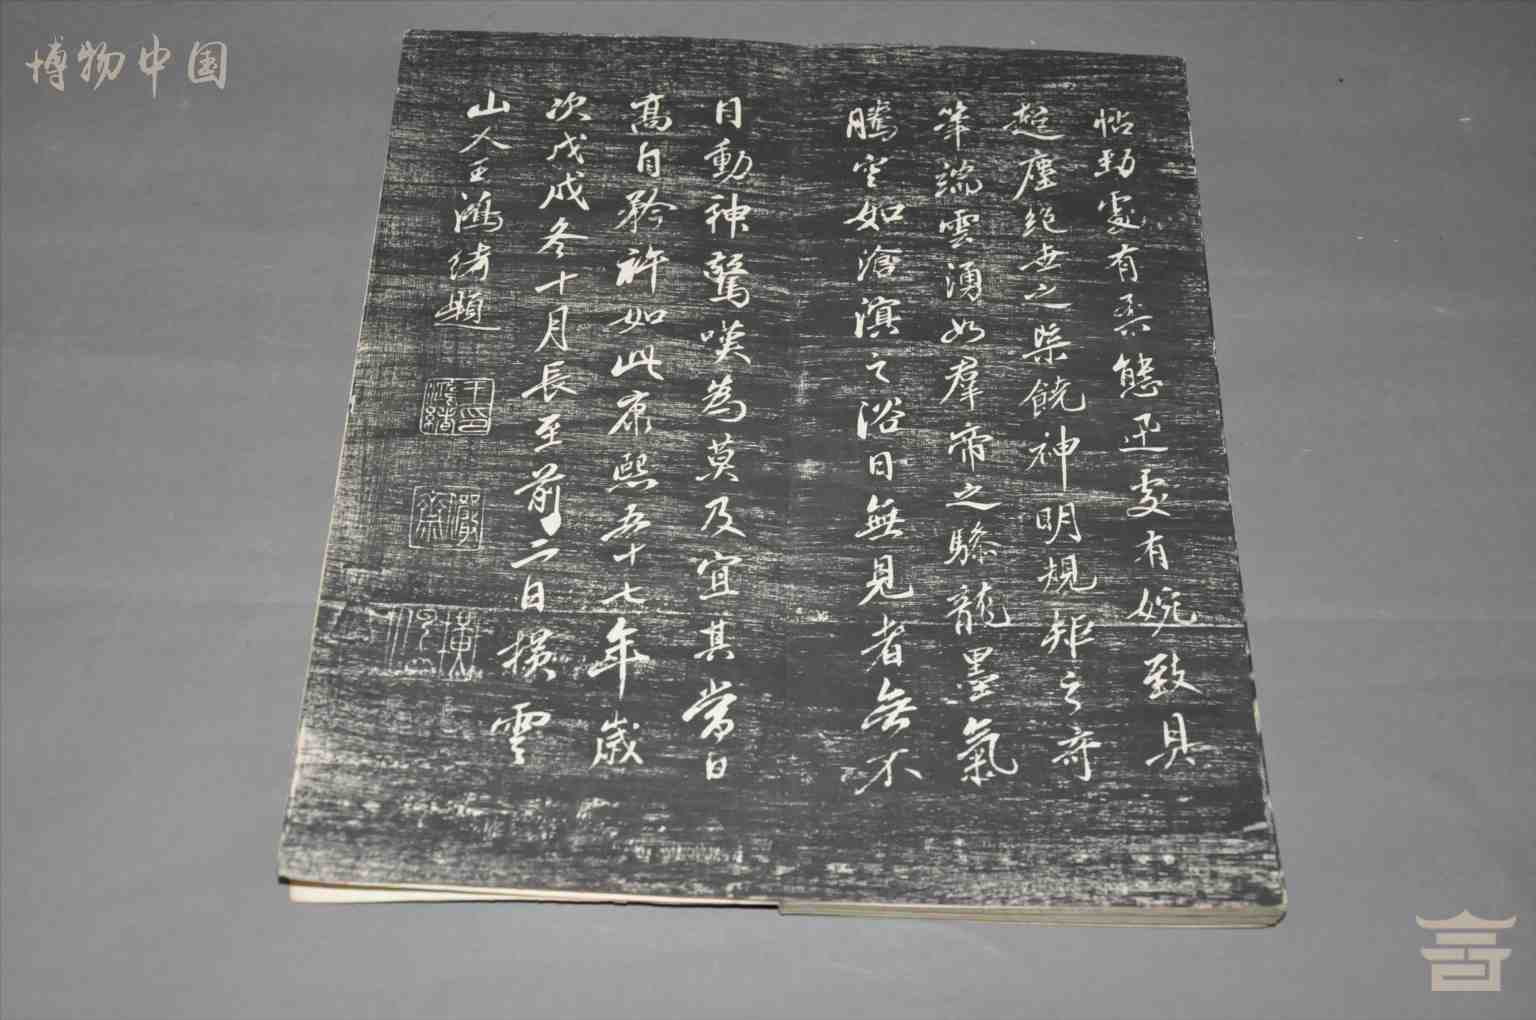 博物中国
帖勁處有柔態迅處有婉致具
超塵絕世之槩饒神明規矩之奇
筆端雲湧如群帝之驂龍墨氣
騰空如滄溟之浴日無見者無不
目動神驚嘆為莫及宜其當日
高自矜許如此康熙五十七年歲
次戊戌冬十月長至前二日橫雲
山人王鴻緒題
王印鴻緒
儼齋